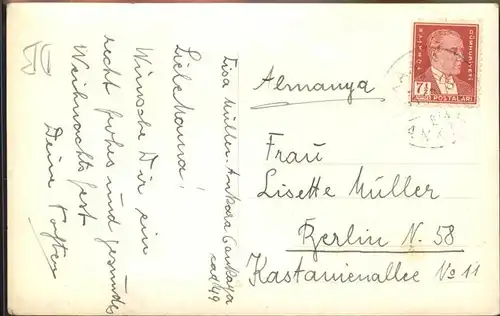 Liebe Mama!
Wünsche Dir ein
recht frohes und gesundes
Weihnachtsfest
Deine
Müller. Ankara Çankaya
cad. 49
Almanya
Frau
Lisette Müller
Berlin N. 58
Kastanienallee No 11
TÜRKİYE
CUMHURİYETİ
7½
POSTALARI